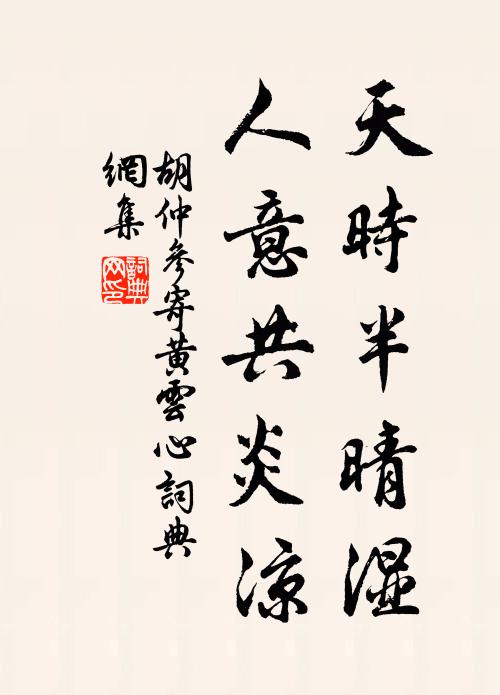 天時半晴湿
人意共炎涼
胡仲參寄黃雲心詞典
網集
詞典
网印